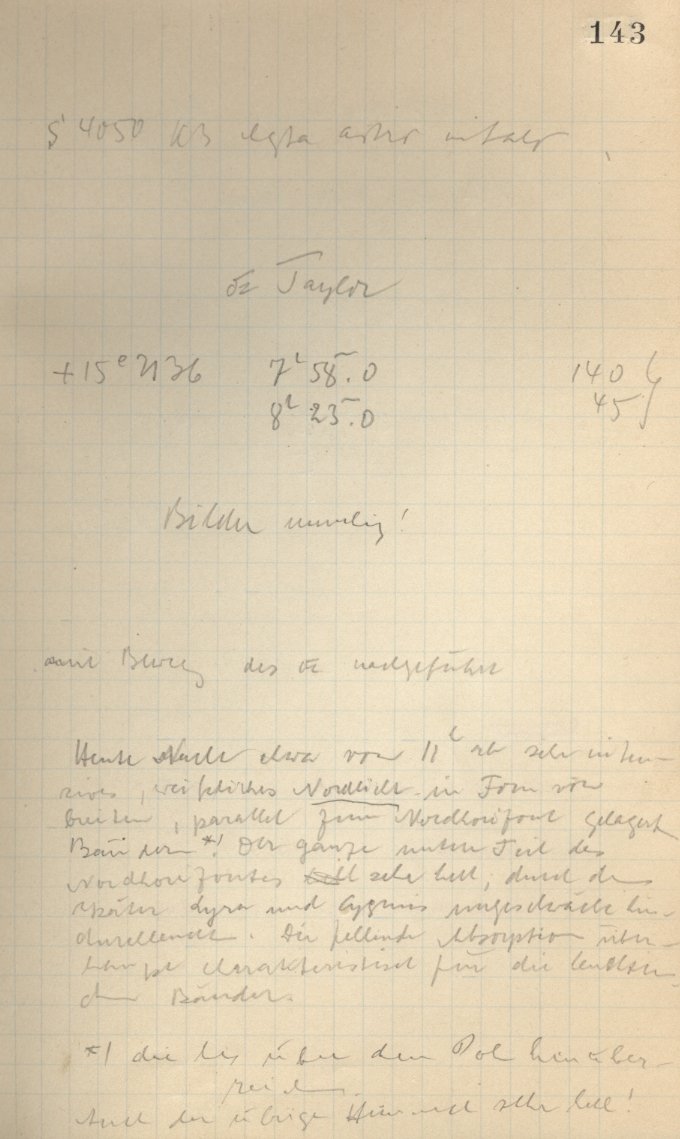 143
S 4050
Taylor
+15° 2136 7h 58.0 140
8h 23.0 45
Bilder unruhig!
mit Beweg des nachgeführt
Heute Nacht etwa von 11h ab sehr inten-
sives, weißliches Nordlicht in Form von
breiten, parallel zum Nordhorizont gelagert
Bändern *). Der ganze untere Teil des
Nordhorizontes sehr hell, durch den
später Lyra und Cygnus ungeschwächt hin-
durchleuchten. Die fehlende Absorption über-
haupt charakteristisch für die leuchten-
den Bänder.
*) die bis über den Pol hinüber-
reichen.
Auch der übrige Himmel sehr hell!